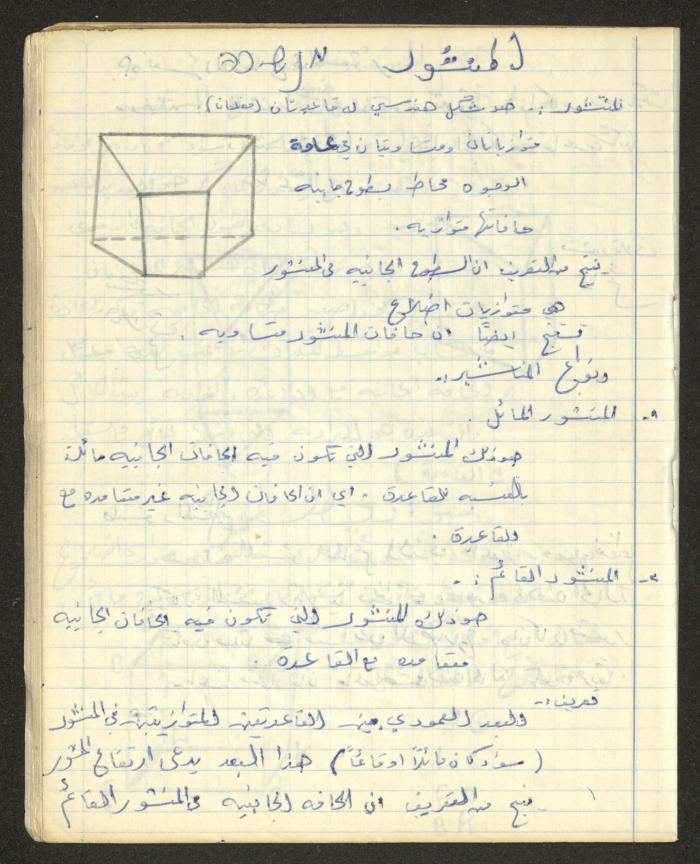 المنشور מנסרה
المنشور :- هو شكل هندسي له قاعدتان (مضلعان)
متوازيتان ومتساويتان في عامة
الوجوه محاط بسطوح جانبيه
حافاتها متوازيه .
نتج من التعريف ان السطوح الجانبيه في المنشور
هي متوازيات اضلاع
نستنتج ايضًا ان حافات المنشور متساويه .
وانواع المناشير :-
١- المنشور المائل .
هو ذلك المنشور الذي تكون فيه الحافات الجانبيه مائلة
بالنسبه للقاعدة . اي ان الحافات الجانبيه غير متعامده مع
القاعدة .
٢- المنشور القائم :-
هو ذلك المنشور الذي تكون فيه الحافات الجانبيه
متعامده مع القاعدة .
تعريف :-
البعد العمودي بين القاعدتين المتوازيتين في المنشور
(سواء كان مائلاً او قائماً) هذا البعد يدعى ارتفاع المنشور
نتج من التعريف ان الحافه الجانبيه في المنشور القائم